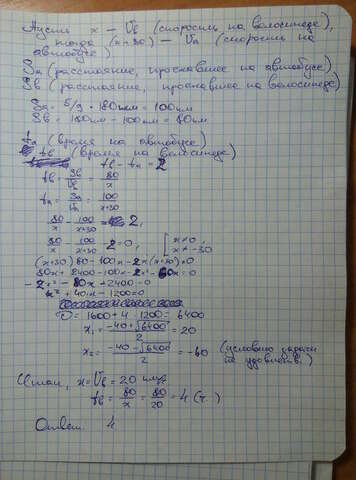 Пусть x – Vв (скорость на велосипеде),
тогда (x+30) – Vа (скорость на
автобусе)
Sа (расстояние, проехавшее на автобусе)
Sв (расстояние, проехавшее на велосипеде)
Sа = 5/9 · 180км = 100км
Sв = 180км - 100км = 80км
tа (время на автобусе)
tв (время на велосипеде)
tв - tа = 2
tв = Sв/Vв = 80/x
tа = Sа/Vа = 100/x+30
80/x - 100/x+30 = 2,
80/x - 100/x+30 - 2 = 0, [ x≠0, x≠-30
(x+30)80 - 100x - 2x(x+30) = 0
80x + 2400 - 100x - 2x² - 60x = 0
- 2x² - 80x + 2400 = 0
x² + 40x - 1200 = 0
D = 1600 + 4 · 1200 = 6400
x₁ = -40+√6400/2 = 20
x₂ = -40-√6400/2 = -60 (условию задачи
не удовлетв.)
Итак, x = Vв = 20 км/ч
tв = 80/x = 80/20 = 4 (ч)
Ответ: 4